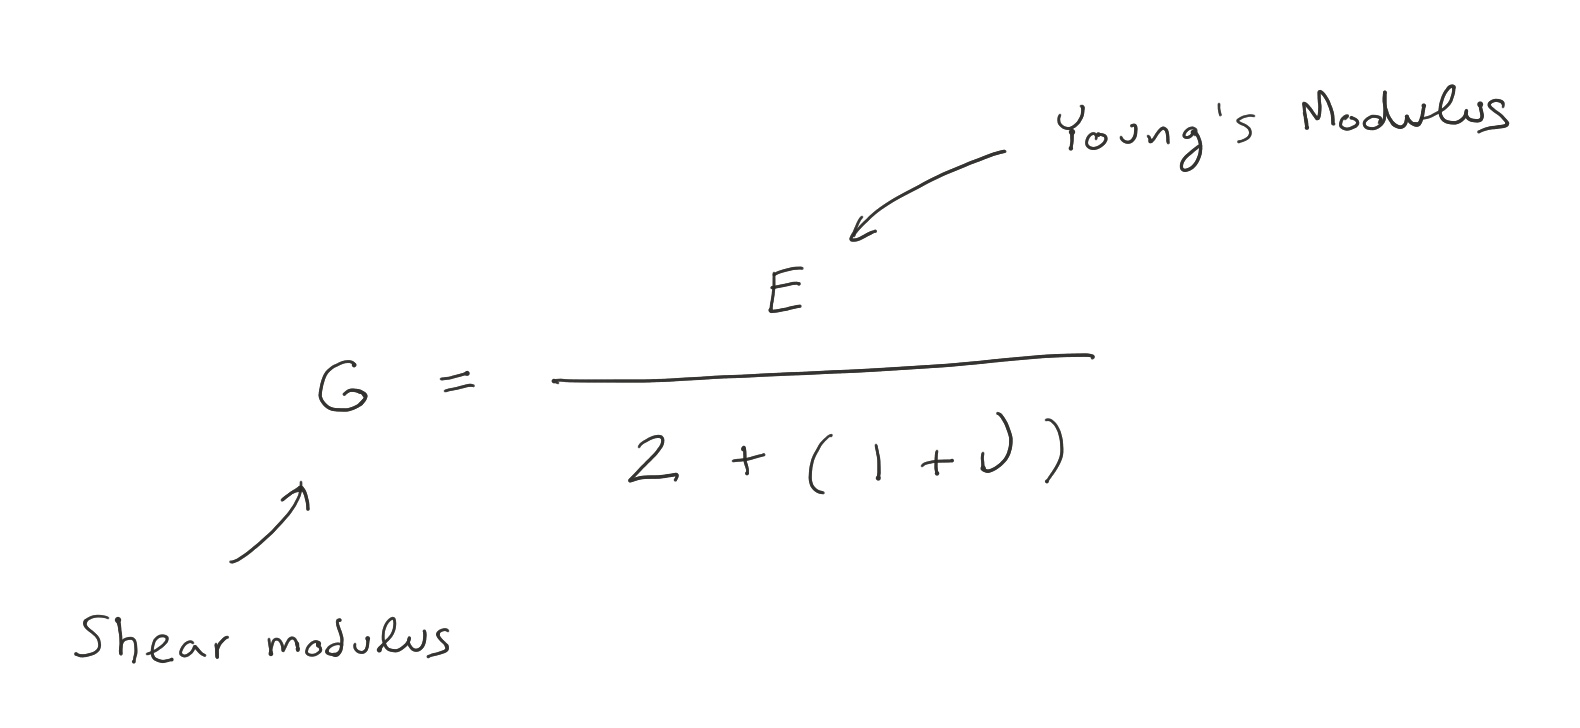 Young's Modulus
E
G = ―――
2 + (1 + ν)
Shear modulus